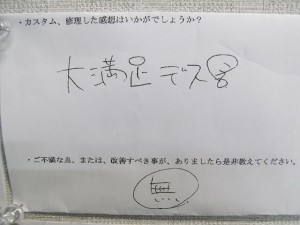 ・カスタム、修理した感想はいかがでしょうか？
大満足デス
・ご不満な点、または、改善すべき事が、ありましたら是非教えてください。
無